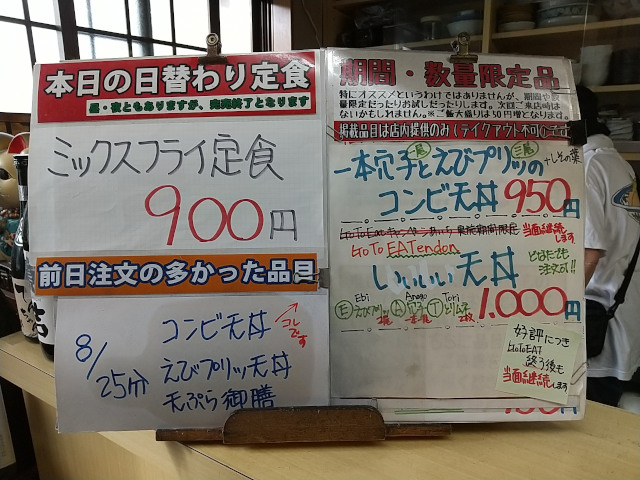 本日の日替わり定食
昼・夜ともありますが、完売終了となります
ミックスフライ定食
900円
前日注文の多かった品目
8/25分
コンビ天丼
コレです
えびプリッツ天丼
天ぷら御膳
期間・数量限定品
特にオススメというわけではありませんが、期間や数
量限定だったりお試しだったりします。次回ご来店時は
ないかもしれません。※ご飯大盛りは50円増となります。
掲載品目は店内提供のみ(テイクアウト不可)です
一本穴子とえびプリッツの
+しその葉
コンビ天丼 950円
GoToEatキャンペーンあいち 県版期間限定
当面継続します
GoTo EATendon
となたでも注文可!!
いいいい天丼
Ebi Anago Tori
Ⓔえびプリッツ Ⓐ Ⓣとりムネ
1.000円
好評につき
GoToEAT
終了後も
当面継続します